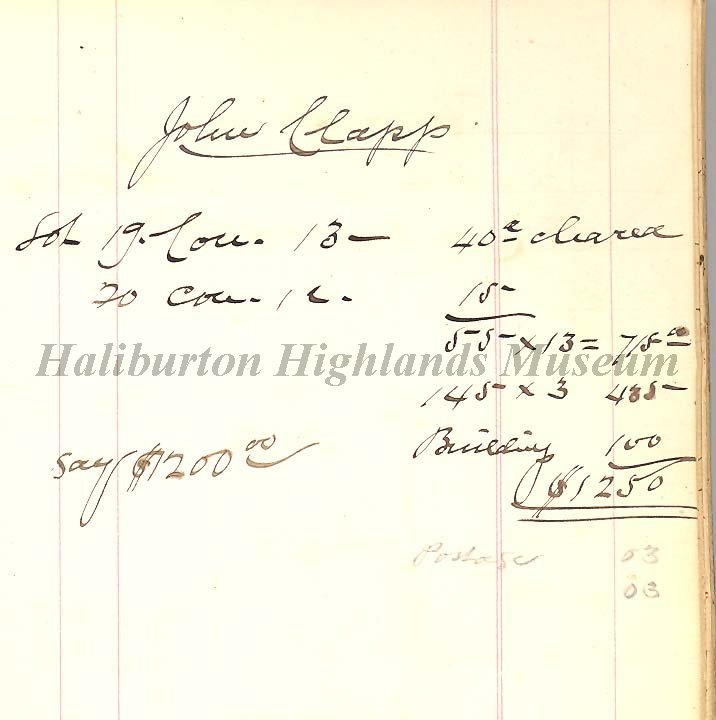 John Clapp.
Lot 19. Con. 13 — 40ª cleared
20 Con. 12. 15
55 × 13 = 715
Haliburton Highlands Museum
145 × 3 435
Building 100
say $1200.00 $1250
Postage 03
03